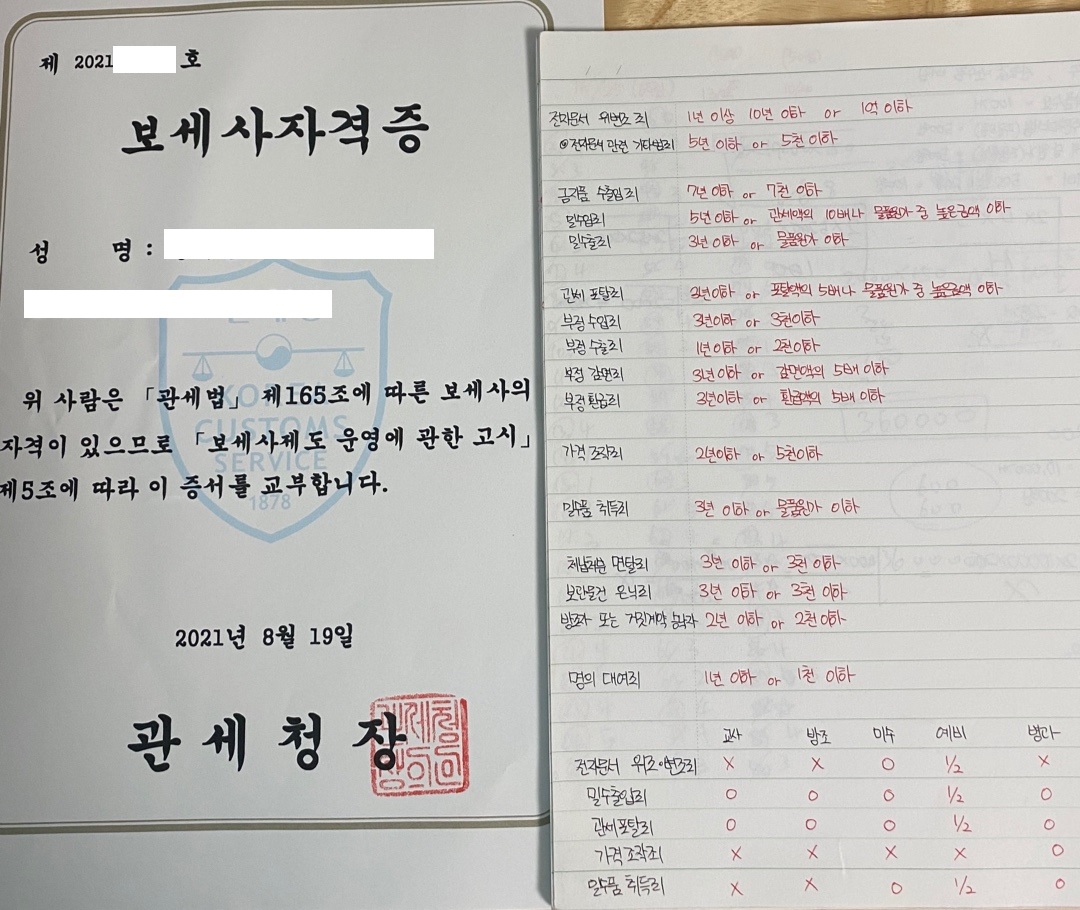 제 2021 호
보세사자격증
성 명 :
KOREA
CUSTOMS
SERVICE
1878
위 사람은 「관세법」 제165조에 따른 보세사의
자격이 있으므로 「보세사제도 운영에 관한 고시」
제5조에 따라 이 증서를 교부합니다.
2021년 8월 19일
관세청장
전자문서 위변조 죄 1년 이상 10년 이하 or 1억 이하
@전자문서 관련 기타범죄 5년 이하 or 5천 이하
금지품 수출입죄 7년 이하 or 7천 이하
밀수입죄 5년 이하 or 관세액의 10배나 물품원가 중 높은금액 이하
밀수출죄 3년 이하 or 물품원가 이하
관세 포탈죄 3년이하 or 포탈액의 5배나 물품원가 중 높은금액 이하
부정 수입죄 3년이하 or 3천이하
부정 수출죄 1년이하 or 2천이하
부정 감면죄 3년이하 or 감면액의 5배 이하
부정환급죄 3년이하 or 환급액의 5배 이하
가격 조작죄 2년이하 or 5천이하
밀수품 취득죄 3년 이하 or 물품원가 이하
체납처분 면탈죄 3년 이하 or 3천 이하
보관물건 은닉죄 3년 이하 or 3천 이하
방조자 또는 거짓계약 승낙자 2년 이하 or 2천이하
명의 대여죄 1년 이하 or 1천 이하
교사 방조 미수 예비 병과
전자문서 위조·변조죄 X X O 1/2 X
밀수출입죄 O O O 1/2 O
관세포탈죄 O O O 1/2 O
가격조작죄 X X X X O
밀수품 취득죄 X X O 1/2 O